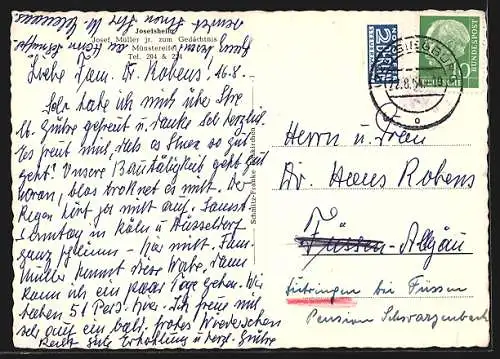 Josefsheim
Josef Müller jr. zum Gedächtnis
Münstereifel
Tel. 204 & 224
Liebe Fam. Dr. Robens! 16.8.-
Sehr habe ich mich über Ihre
lb. Grüße gefreut u. danke sehr herzlich.
Es freut mich, daß es Ihnen so gut
geht! Unsere Bautätigkeit geht gut
voran, blos troknet es nicht. Der
Regen hört ja nicht auf. Samst.
Sonntag in Köln u. Düsseldorf
ganz - hier nicht. Fam.
Müller kommt diese Woche, dann
kann ich ein paar Tage gehen. Wir
haben 51 Pers. hier. Ich freue mich
sehr auf ein bald. frohes Wiedersehen
Recht gute Erholung u. herzl. Grüße
Schmitz-Franke
NOTOPFER
2 BERLIN
STEUERMARKE
DEUTSCHE BUNDESPOST
10
22.8.
Herrn u. Frau
Dr. Hans Robens
Füssen-Allgäu
bei Füssen
Pension Schwarzenbach